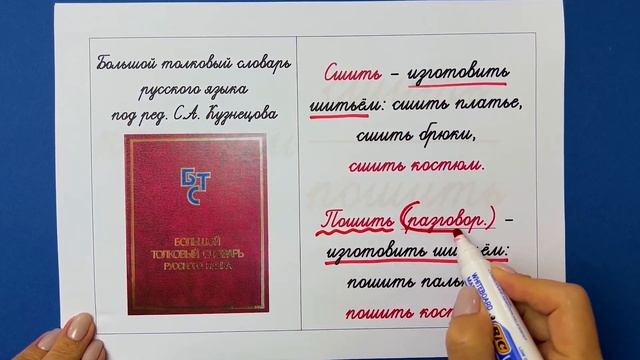 Большой толковый словарь
русского языка
под ред. С.А. Кузнецова
БТС
БОЛЬШОЙ
ТОЛКОВЫЙ СЛОВАРЬ
РУССКОГО ЯЗЫКА
Сшить – изготовить
шитьём: сшить платье,
сшить брюки,
сшить костюм.
Пошить (разговор.) –
изготовить шитьём:
пошить
пошить
WHITEBOARD